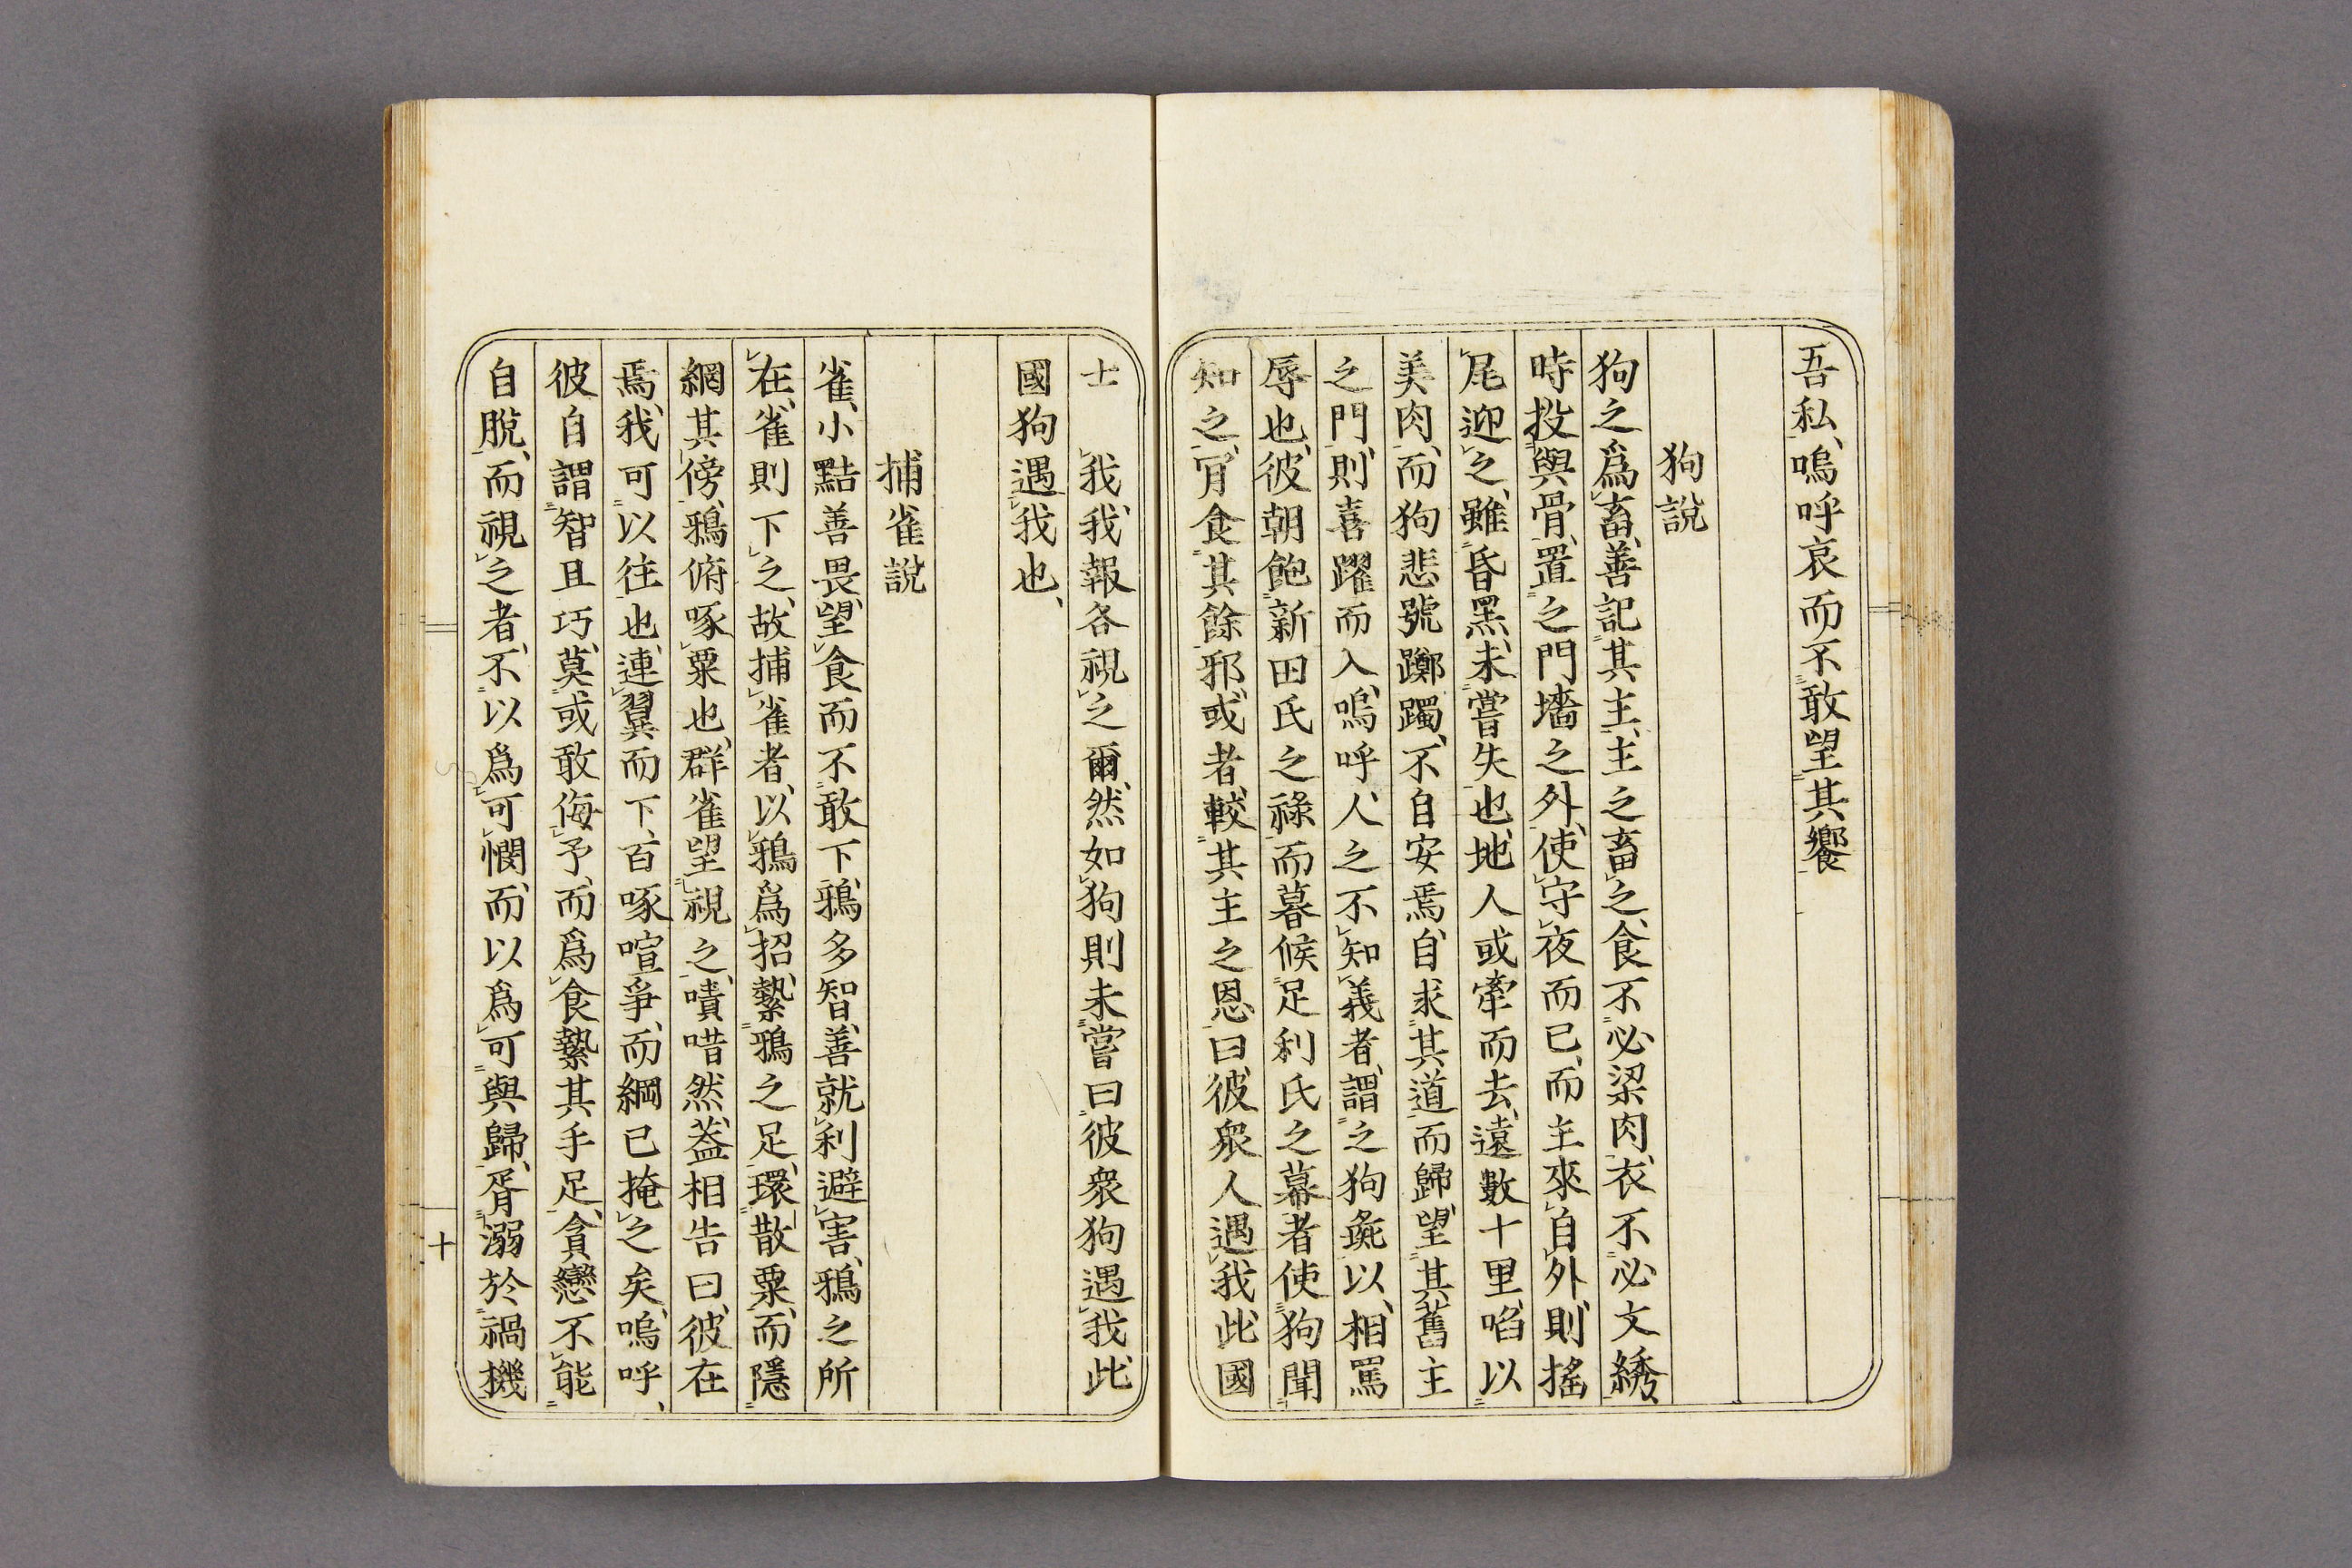 吾私、嗚呼哀而不敢望其饗
狗說
狗之爲畜、善記其主、主之畜之、食不必梁肉、衣不必文綉、
時投與骨、置之門墻之外、使守夜而已、而主來自外、則搖
尾迎之、雖昏黑、未嘗失也、地人或牽而去、遠數十里、啗以
美肉、而狗悲號躑躅、不自安焉、自求其道而歸、望其舊主
之門、則喜躍而入、嗚呼、人之不知義者、謂之狗彘、以相罵
辱也、彼朝飽新田氏之祿、而暮候足利氏之幕者、使狗聞
知之、肎食其餘邪、或者、較其主之恩、曰、彼衆人遇我、此國
士 我、我報各視之爾、然如狗則未嘗曰彼衆狗遇我、此
國狗遇我也、
捕雀說
雀、小黠善畏、望食而不敢下、鴉多智、善就利避害、鴉之所
在、雀則下之、故捕雀者、以鴉爲招、縶鴉之足、環散粟、而隱
網其傍、鴉俯啄粟也、群雀望視之、嘖唶然、蓋相告曰、彼在
焉、我可以往也、連翼而下、百啄喧爭、而綱已掩之矣、嗚呼、
彼自謂智且巧、莫或敢侮予、而爲食縶其手足、貪戀不能
自脫、而視之者、不以爲可憫、而以爲可與歸、胥溺於禍機
十